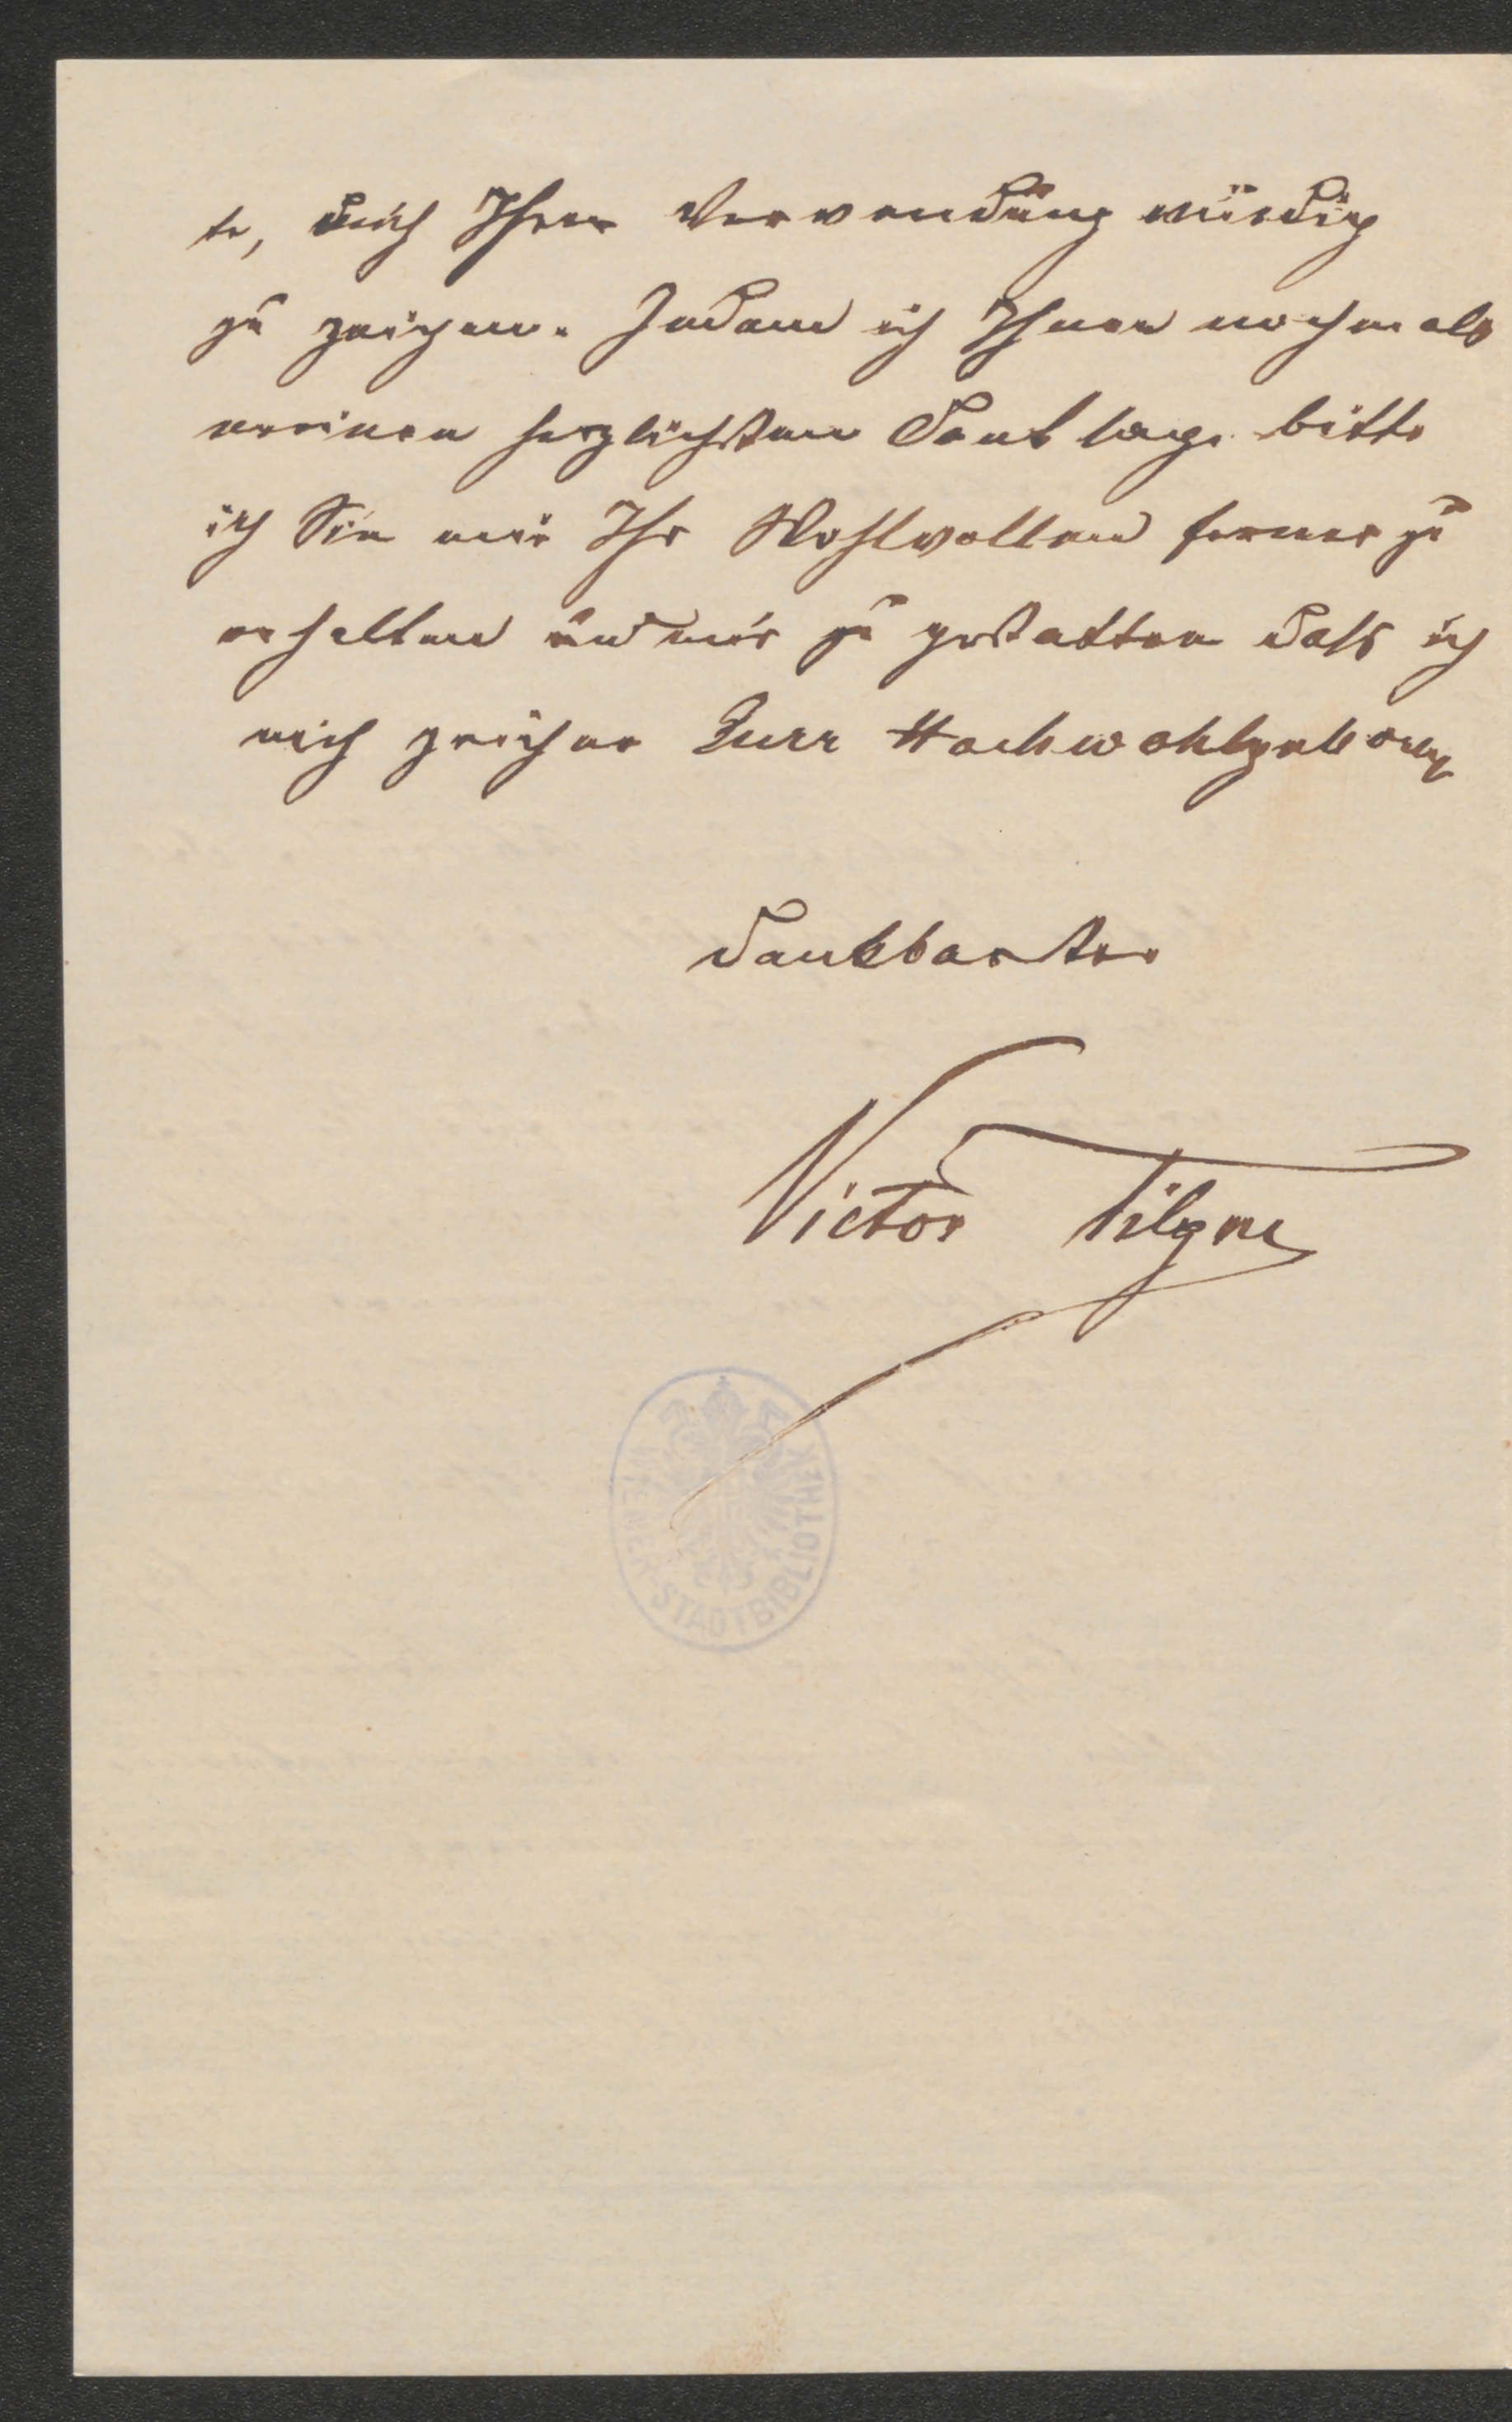 te, mich Ihrer Verwendung würdig
zu zeigen. Indem ich Ihnen nochmals
meinen herzlichsten Dank sage bitte
ich Sie mir Ihr Wohlwollen ferner zu
erhalten und mir zu gestatten dass ich
mich zeichne Euer Hochwohlgeboren
dankbarster
Victor Tilgner
WIENER-STADTBIBLIOTHEK